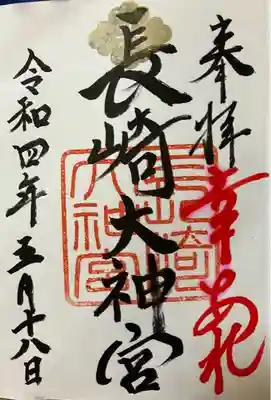 奉拝
長崎大神宮
長崎大神宮
令和四年五月十八日